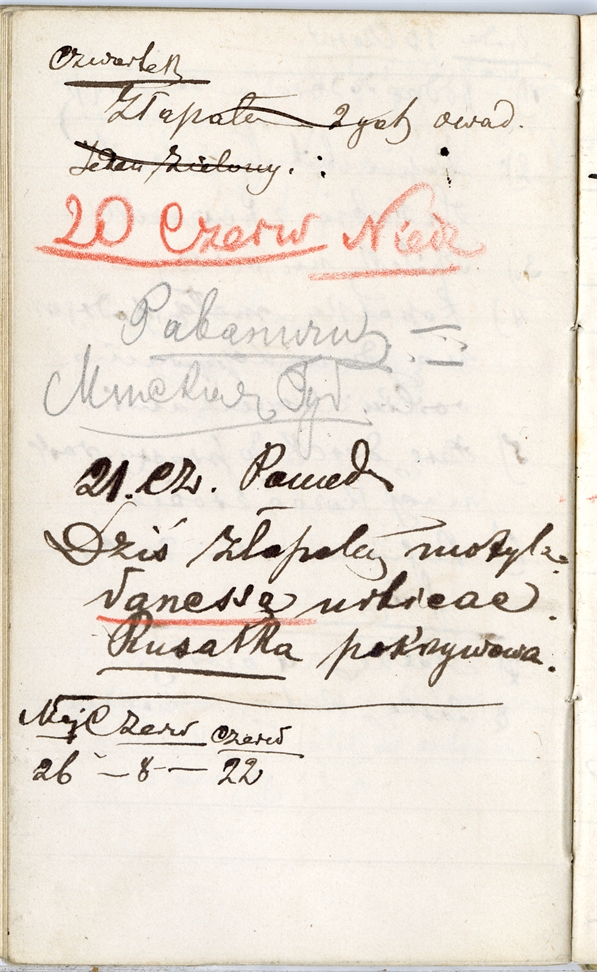 Czwartek
Złapała 2 ych owad.
Jeden zielony. :
20 Czerw Niedz
21. Cz. Ponied
Dziś złapałaś motyla
Vanessa urticae.
Rusałka pokrzywowa.
Maj Czerw Czerw
26 – 8 – 22